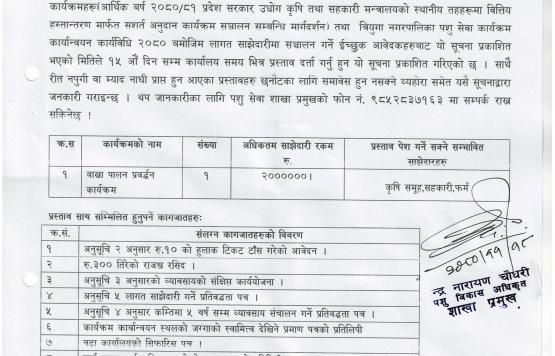 कार्यक्रमहरू(आर्थिक वर्ष २०८०/८१ प्रदेश सरकार उद्योग कृषि तथा सहकारी मन्त्रालयको स्थानीय तहहरूमा वित्तिय
हस्तान्तरण मार्फत सशर्त अनुदान कार्यक्रम सञ्चालन सम्बन्धि मार्गदर्शन) तथा त्रियुगा नगरपालिका पशु सेवा कार्यक्रम
कार्यान्वयन कार्यविधि २०८० बमोजिम लागत साझेदारीमा सञ्चालन गर्ने ईच्छुक आवेदकहरुबाट यो सूचना प्रकाशित
भएको मितिले १५ औं दिन सम्म कार्यालय समय भित्र प्रस्ताव दर्ता गर्नु हुन यो सूचना प्रकाशित गरिएको छ । साथै
रीत नपुगी वा म्याद नाघी प्राप्त हुन आएका प्रस्तावहरु छनौटका लागि समावेस हुन नसक्ने व्यहोरा समेत यसै सूचनाद्वारा
जानकारी गराइन्छ । थप जानकारीका लागि पशु सेवा शाखा प्रमुखको फोन नं. ९८५२८३७१६३ मा सम्पर्क राख्न
सकिनेछ !
क्र.स कार्यक्रमको नाम संख्या अधिकतम साझेदारी रकम रु. प्रस्ताव पेश गर्ने सक्ने सम्भावित साझेदारहरु
१ बाख्रा पालन प्रवर्द्धन कार्यक्रम १ २००००००। कृषि समूह,सहकारी,फर्म
प्रस्ताव साथ सम्मिलित हुनुपर्ने कागजातहरु:
क्र.सं. संलग्न कागजातहरुको विवरण
१ अनुसूचि २ अनुसार रु.१० को हुलाक टिकट टाँस गरेको आवेदन ।
२ रु.३०० तिरेको राजश्व रसिद ।
३ अनुसूचि ३ अनुसारको व्यावसायको संक्षिप्त कार्ययोजना ।
४ अनुसूचि ५ लागत साझेदारी गर्ने प्रतिवद्धता पत्र ।
५ अनुसूचि ४ अनुसार कम्तिमा ५ वर्ष सम्म व्यवसाय संचालन गर्ने प्रतिवद्धता पत्र ।
६ कार्यक्रम कार्यान्वयन स्थलको जग्गाको स्वामित्व देखिने प्रमाण पत्रको प्रतिलिपी
७ वडा कार्यालयको सिफारिस पत्र ।
२०८०/११/१८
न्द्र नारायण चौधरी
पशु विकास अधिकृत
शाखा प्रमुख